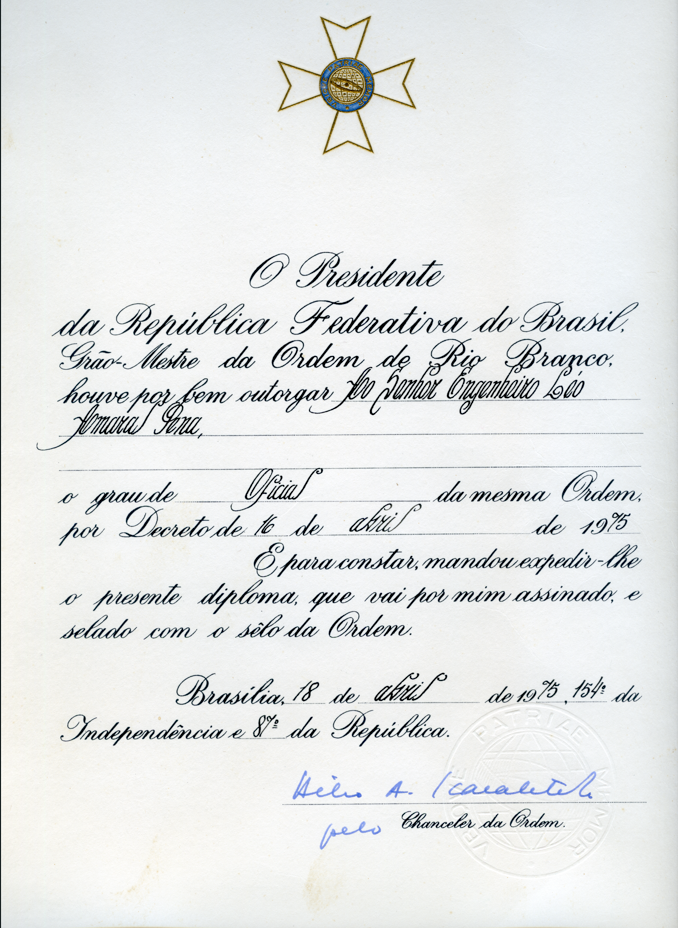 O Presidente
da República Federativa do Brasil,
Grão-Mestre da Ordem de Rio Branco,
houve por bem outorgar Ao Senhor Engenheiro Léo
Amaral Pena,
o grau de Oficial da mesma Ordem,
por Decreto de 16 de abril de 1975
E, para constar, mandou expedir-lhe
o presente diploma, que vai por mim assinado, e
selado com o sêlo da Ordem.
Brasília, 18 de abril de 1975, 154º da
Independência e 87º da República.
pelo Chanceler da Ordem.
PATRIAE MEMOR